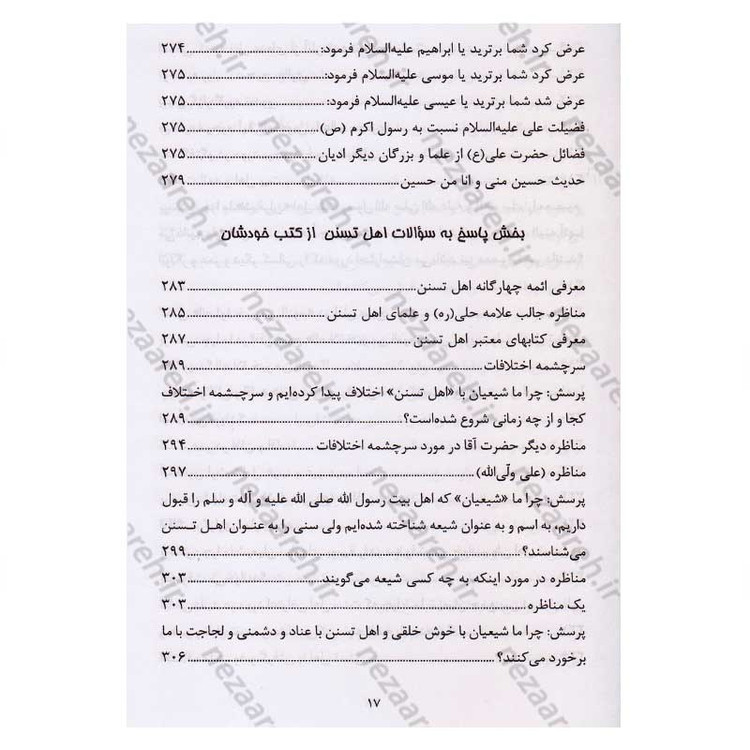 عرض کرد شما برترید یا ابراهیم علیه‌السلام فرمود:........۲۷۴
عرض کرد شما برترید یا موسی علیه‌السلام فرمود:........۲۷۵
عرض شد شما برترید یا عیسی علیه‌السلام فرمود:........۲۷۵
فضیلت علی علیه‌السلام نسبت به رسول اکرم (ص)........۲۷۵
فضائل حضرت علی(ع) از علما و بزرگان دیگر ادیان........۲۷۵
حدیث حسین منی و انا من حسین........۲۷۹
بخش پاسخ به سؤالات اهل تسنن از کتب خودشان
معرفی ائمه چهارگانه اهل تسنن........۲۸۳
مناظره جالب علامه حلی(ره) و علمای اهل تسنن........۲۸۵
معرفی کتابهای معتبر اهل تسنن........۲۸۷
سرچشمه اختلافات........۲۸۹
پرسش: چرا ما شیعیان با «اهل تسنن» اختلاف پیدا کرده‌ایم و سرچـشمه اختـلاف
کجا و از چه زمانی شروع شده‌است؟........۲۸۹
مناظره دیگر حضرت آقا در مورد سرچشمه اختلافات........۲۹۴
مناظره (علی ولّی‌الله)........۲۹۷
پرسش: چرا ما «شیعیان» که اهل بیت رسول الله صلی الله علیه و آله و سلم را قبول
داریم، به اسم و به عنوان شیعه شناخته شده‌ایم ولی سنی را به عنـوان اهـل تـسنن
می‌شناسند؟........۲۹۹
مناظره در مورد اینکه به چه کسی شیعه می‌گویند........۳۰۳
یک مناظره........۳۰۳
پرسش: چرا ما شیعیان با خوش خلقی و اهل تسنن با عناد و دشمنی و لجاجت با ما
برخورد می‌کنند؟........۳۰۶
۱۷
nezaareh.ir